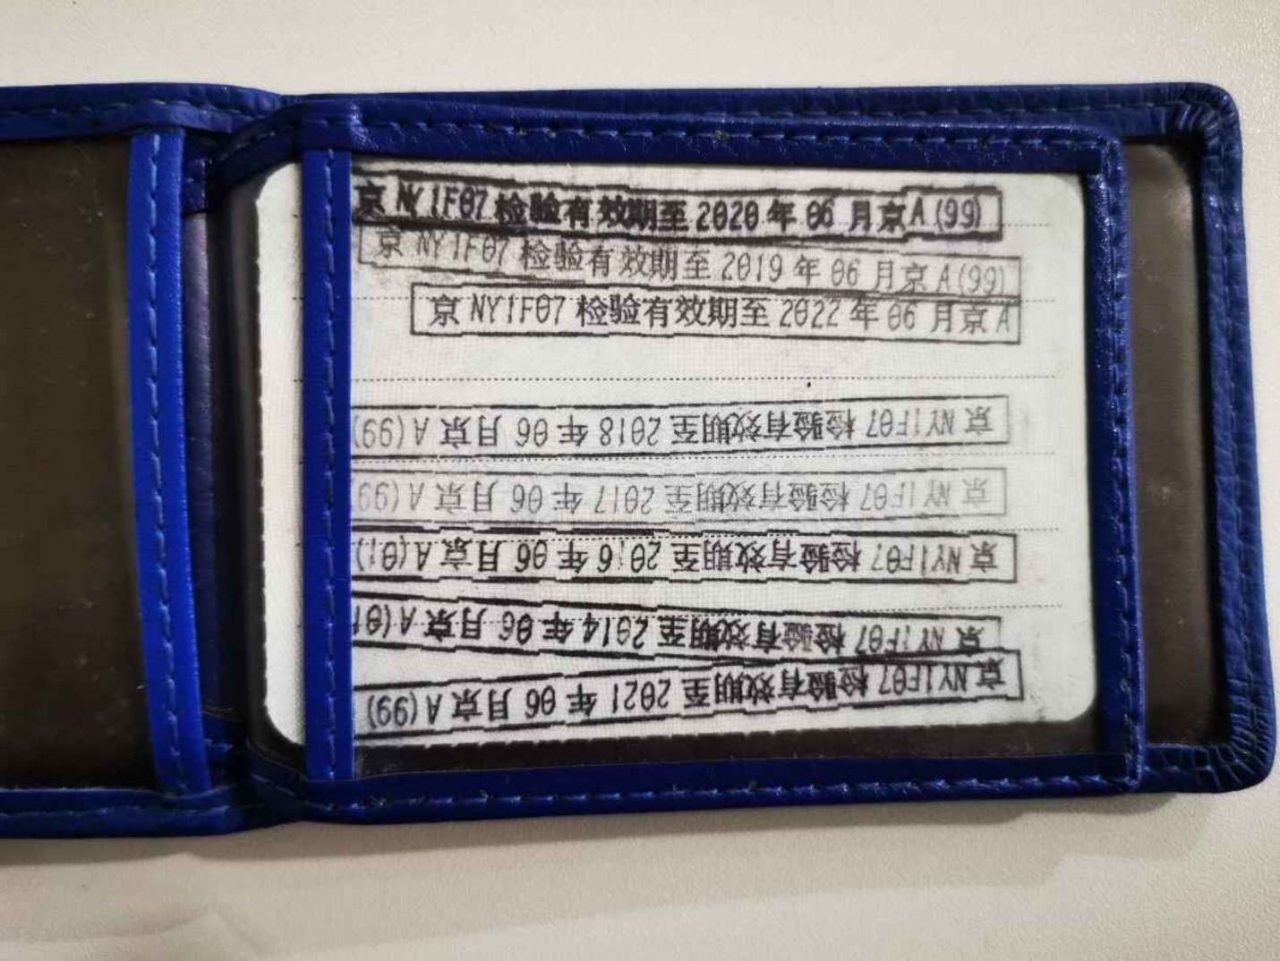 京NY1F07检验有效期至2020年06月京A(99)
京NY1F07检验有效期至2019年06月京A(99)
京NY1F07检验有效期至2022年06月京A
京NY1F07检验有效期至2018年06月京A(99)
京NY1F07检验有效期至2017年06月京A(99)
京NY1F07检验有效期至2016年06月京A(01)
京NY1F07检验有效期至2014年06月京A(01
京NY1F07检验有效期至2021年06月京A(99)